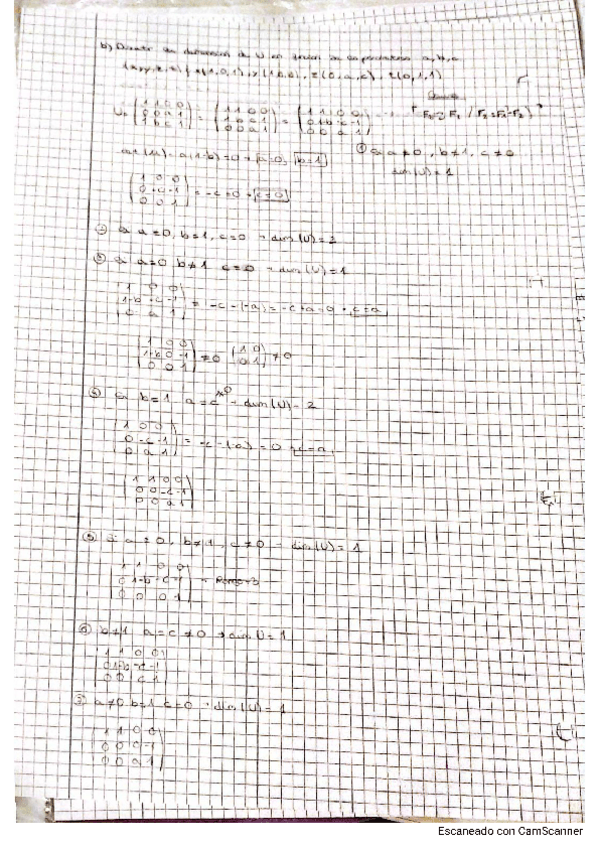 b) Discutir la dimensión de U en función de los parámetros a, b, c
U =
| 1 1 0 0 |
| 0 0 a 1 |
| 1 b c 1 |
=
| 1 1 0 0 |
| 1 b c 1 |
| 0 0 a 1 |
=
| 1 1 0 0 |
| 0 1-b -c -1 |
| 0 0 a 1 |
b=1
① Si a≠0, b≠1, c≠0
dim(U)=1
| 1 0 0 |
| 0 -c -1 |
| 0 0 1 |
= -c=0
② Si a=0, b=1, c=0 → dim(U)=2
③ Si a=0 b≠1 c=0 → dim(U)=1
| 1 0 0 |
| 1-b -c -1 |
| 0 a 1 |
= -c-(-a) = -c+a=0 · c=a
| 1 0 0 |
| 1-b 0 -1 |
| 0 0 1 |
≠0
| 1 0 |
| 0 1 |
≠0
④ Si b=1 a=c≠0 → dim(U)=2
| 1 0 0 |
| 0 -c -1 |
| 0 a 1 |
= -c-(-a)=0 c=a
| 1 1 0 0 |
| 0 0 -c -1 |
| 0 0 a 1 |
⑤ Si a=0, b≠1, c≠0 → dim(U)=1
| 1 1 0 0 |
| 0 1-b -c -1 |
| 0 0 0 1 |
= Rango=3
⑥ b≠1 a=c≠0 → dim U=1
| 1 1 0 0 |
| 0 1-b -c -1 |
| 0 0 c 1 |
⑦ a≠0 b=1 c=0 · dim(U)=1
| 1 1 0 0 |
| 0 0 0 -1 |
| 0 0 a 1 |
Escaneado con CamScanner